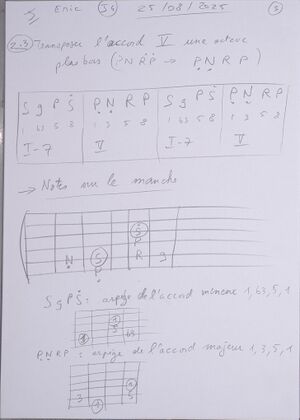 Eric JG 25/08/2025
2.3 Transposer l'accord V une octave
plus bas (ṖNṘṖ → P̣ṆRP)
S g P Ṡ | P̣ Ṇ R P | S g P Ṡ | P̣ Ṇ R P
1 b3 5 8 | 1 3 5 8 | 1 b3 5 8 | 1 3 5 8
I-7 | V | I-7 | V
→ Notes sur le manche
Ṡ
P
Ṇ S R g
P̣
S g P Ṡ : arpège de l'accord mineur 1, b3, 5, 1
1
5
1 b3
P̣ Ṇ R P : arpège de l'accord majeur 1, 3, 5, 1
1
3 5
1